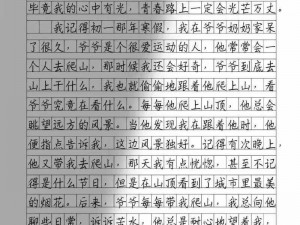 毕竟我的心中有光，青春路上一定会光芒万丈。
我记得初一那年寒假，我在爷爷奶奶家呆
了很久，爷爷是个很爱运动的人，他常常会一
个人去爬山，那时候我还会好奇，爷爷到底去
山上干什么，我也就偷偷地跟着他爬上山，看
爷爷究竟在看什么。每每他爬上山顶，他总会
眺望远方的风景。当他发现我在跟着他时，他
便指点告诉我，这边风景独好。记得有次晚上，
他又带我去爬山，那天我有点恍惚，甚至不记
得是什么节日，但是在山顶看到了城市里最美
的烟花。后来，爷爷带我爬山，我总向他
聊些日常，诉诉苦水，他总是耐心地望着我，